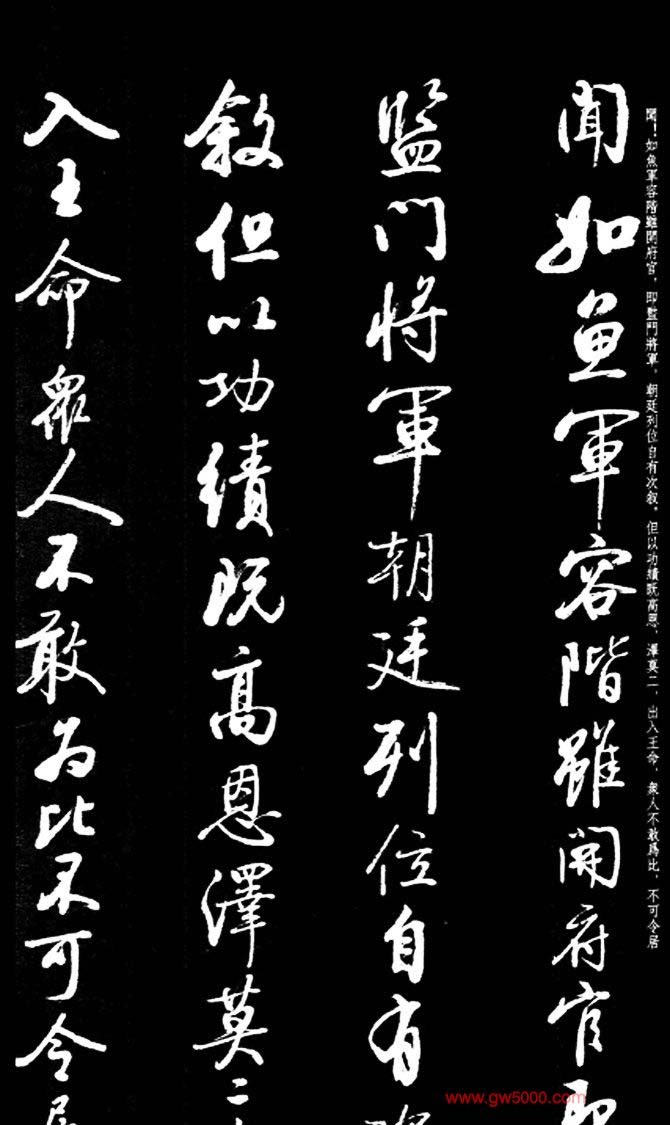 聞！如魚軍容階雖開府官，即監門將軍，朝廷列位自有次叙。但以功績既高恩、澤莫二，出入王命，衆人不敢爲比，不可令居
聞如魚軍容階雖開府官即
監門將軍朝廷列位自有次
敘但以功績既高恩澤莫二
入王命衆人不敢為比不可令居
www.gw5000.com